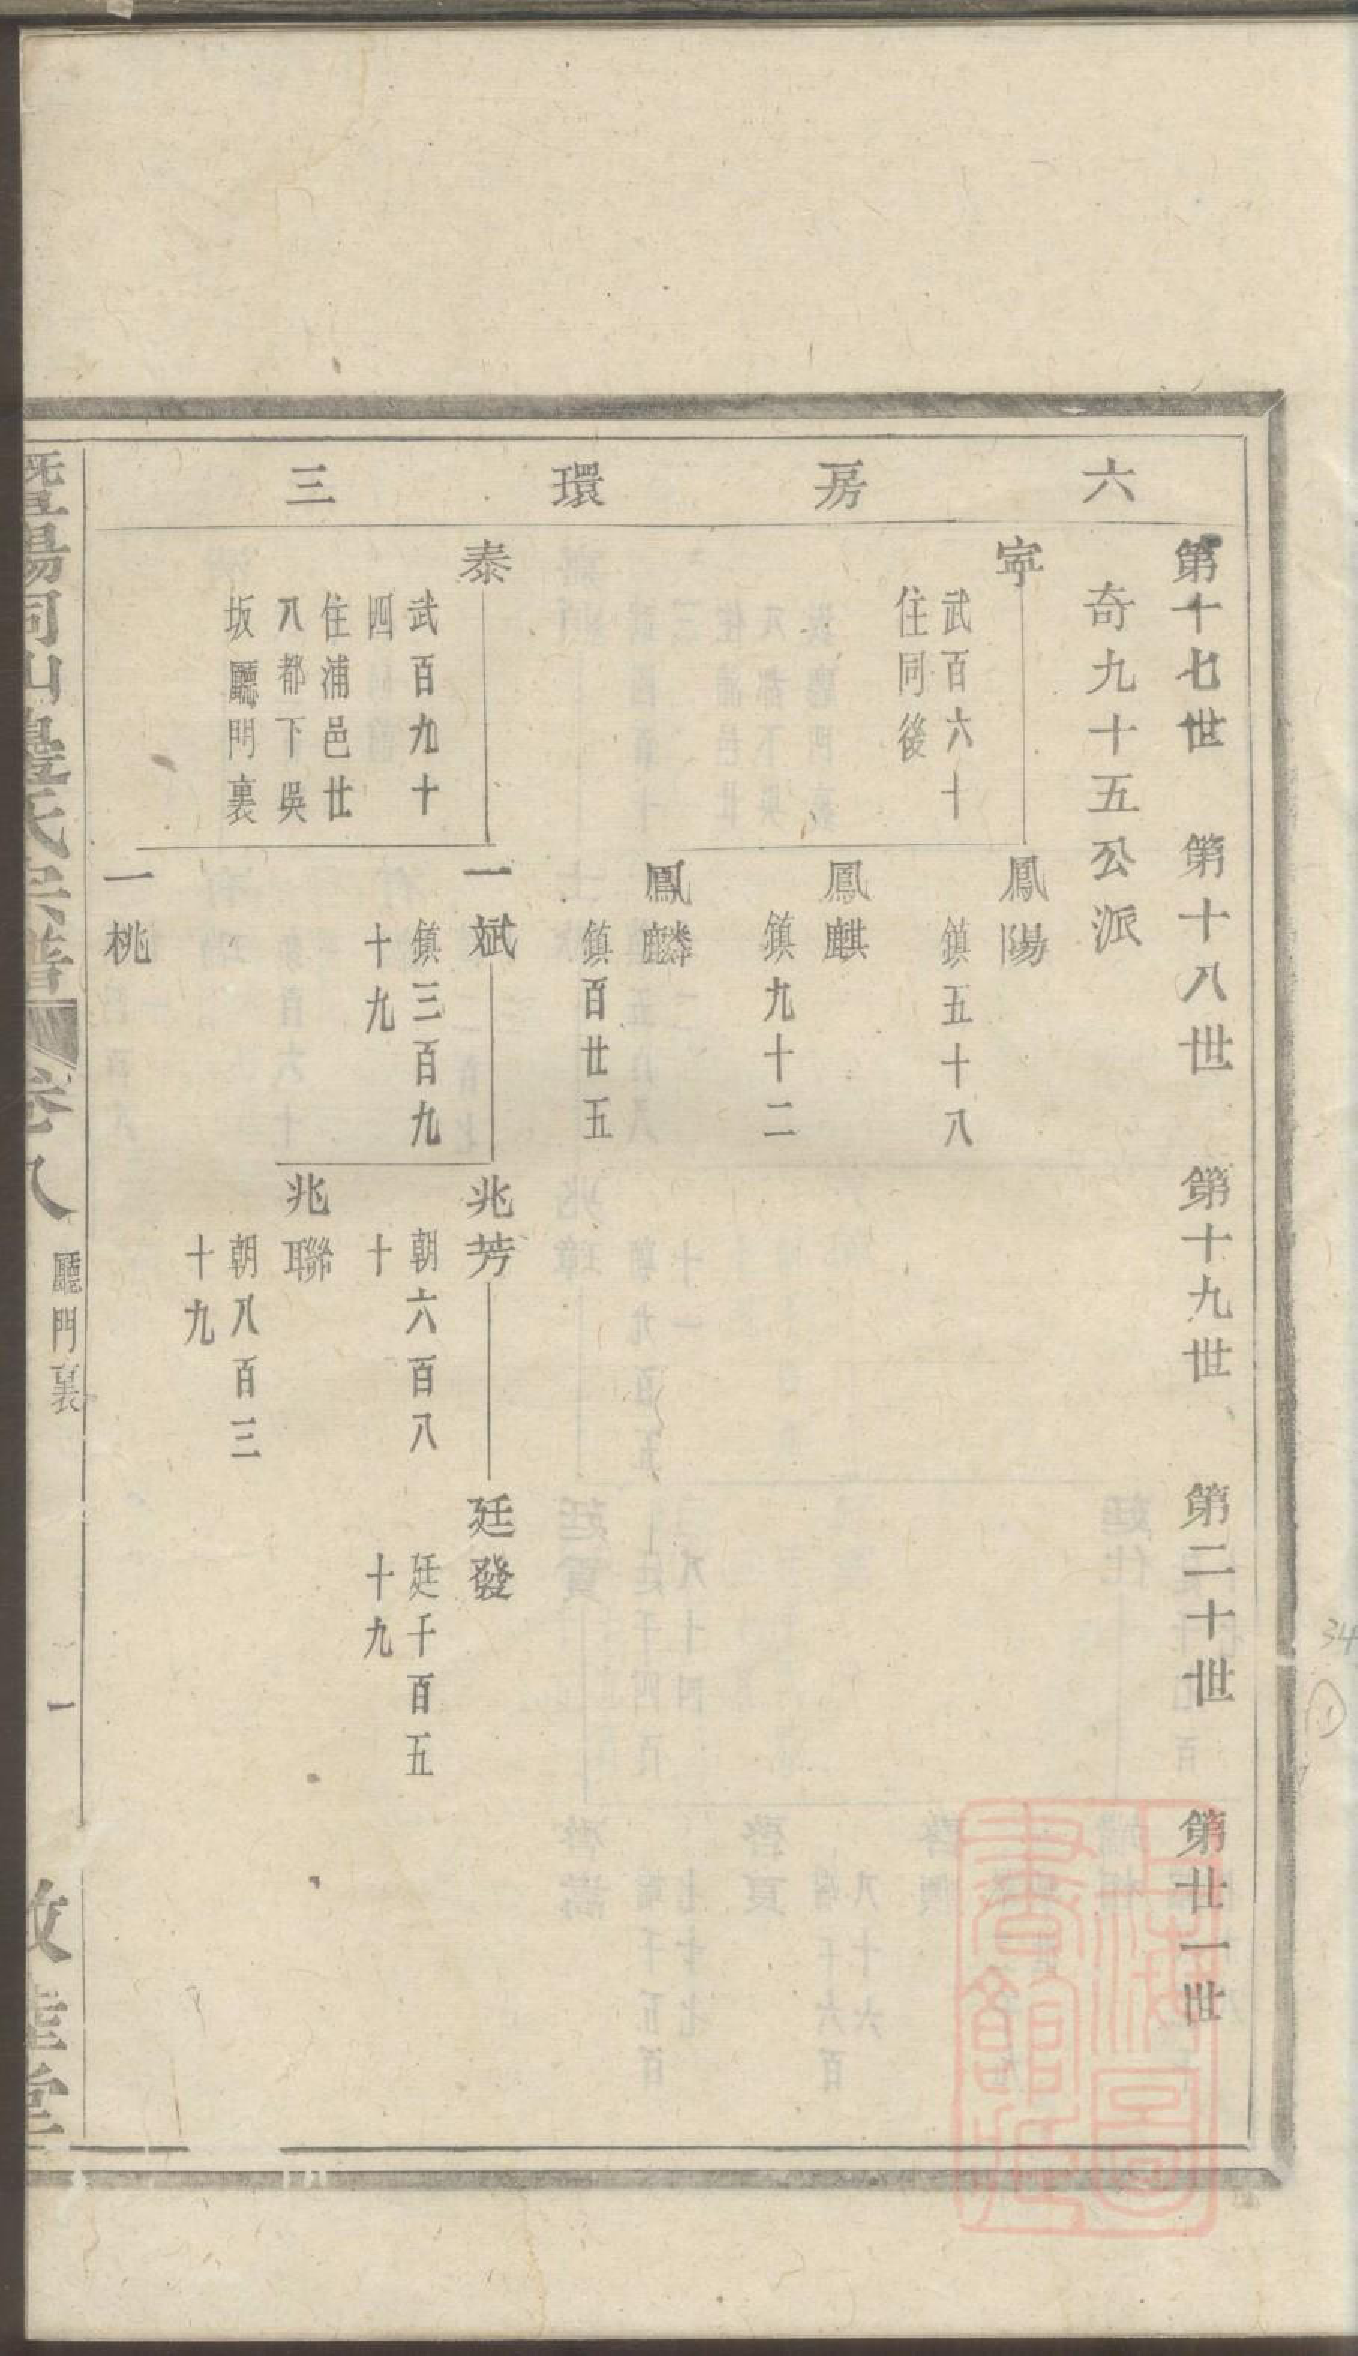 六房環三
第十七世 第十八世 第十九世 第二十世 第廿一世
奇九十五公派
寍
武百六十
住同後
鳳陽
鎮五十八
鳳麒
鎮九十二
鳳麟
鎮百廿五
泰
武百九十
四
住浦邑廿
八都下吳
坂廳門裏
一斌
鎮三百九
十九
兆芳
朝六百八
十
廷發
廷千百五
十九
兆聯
朝八百三
十九
一桃
暨陽同山邊氏宗譜 卷八 廳門裏 一